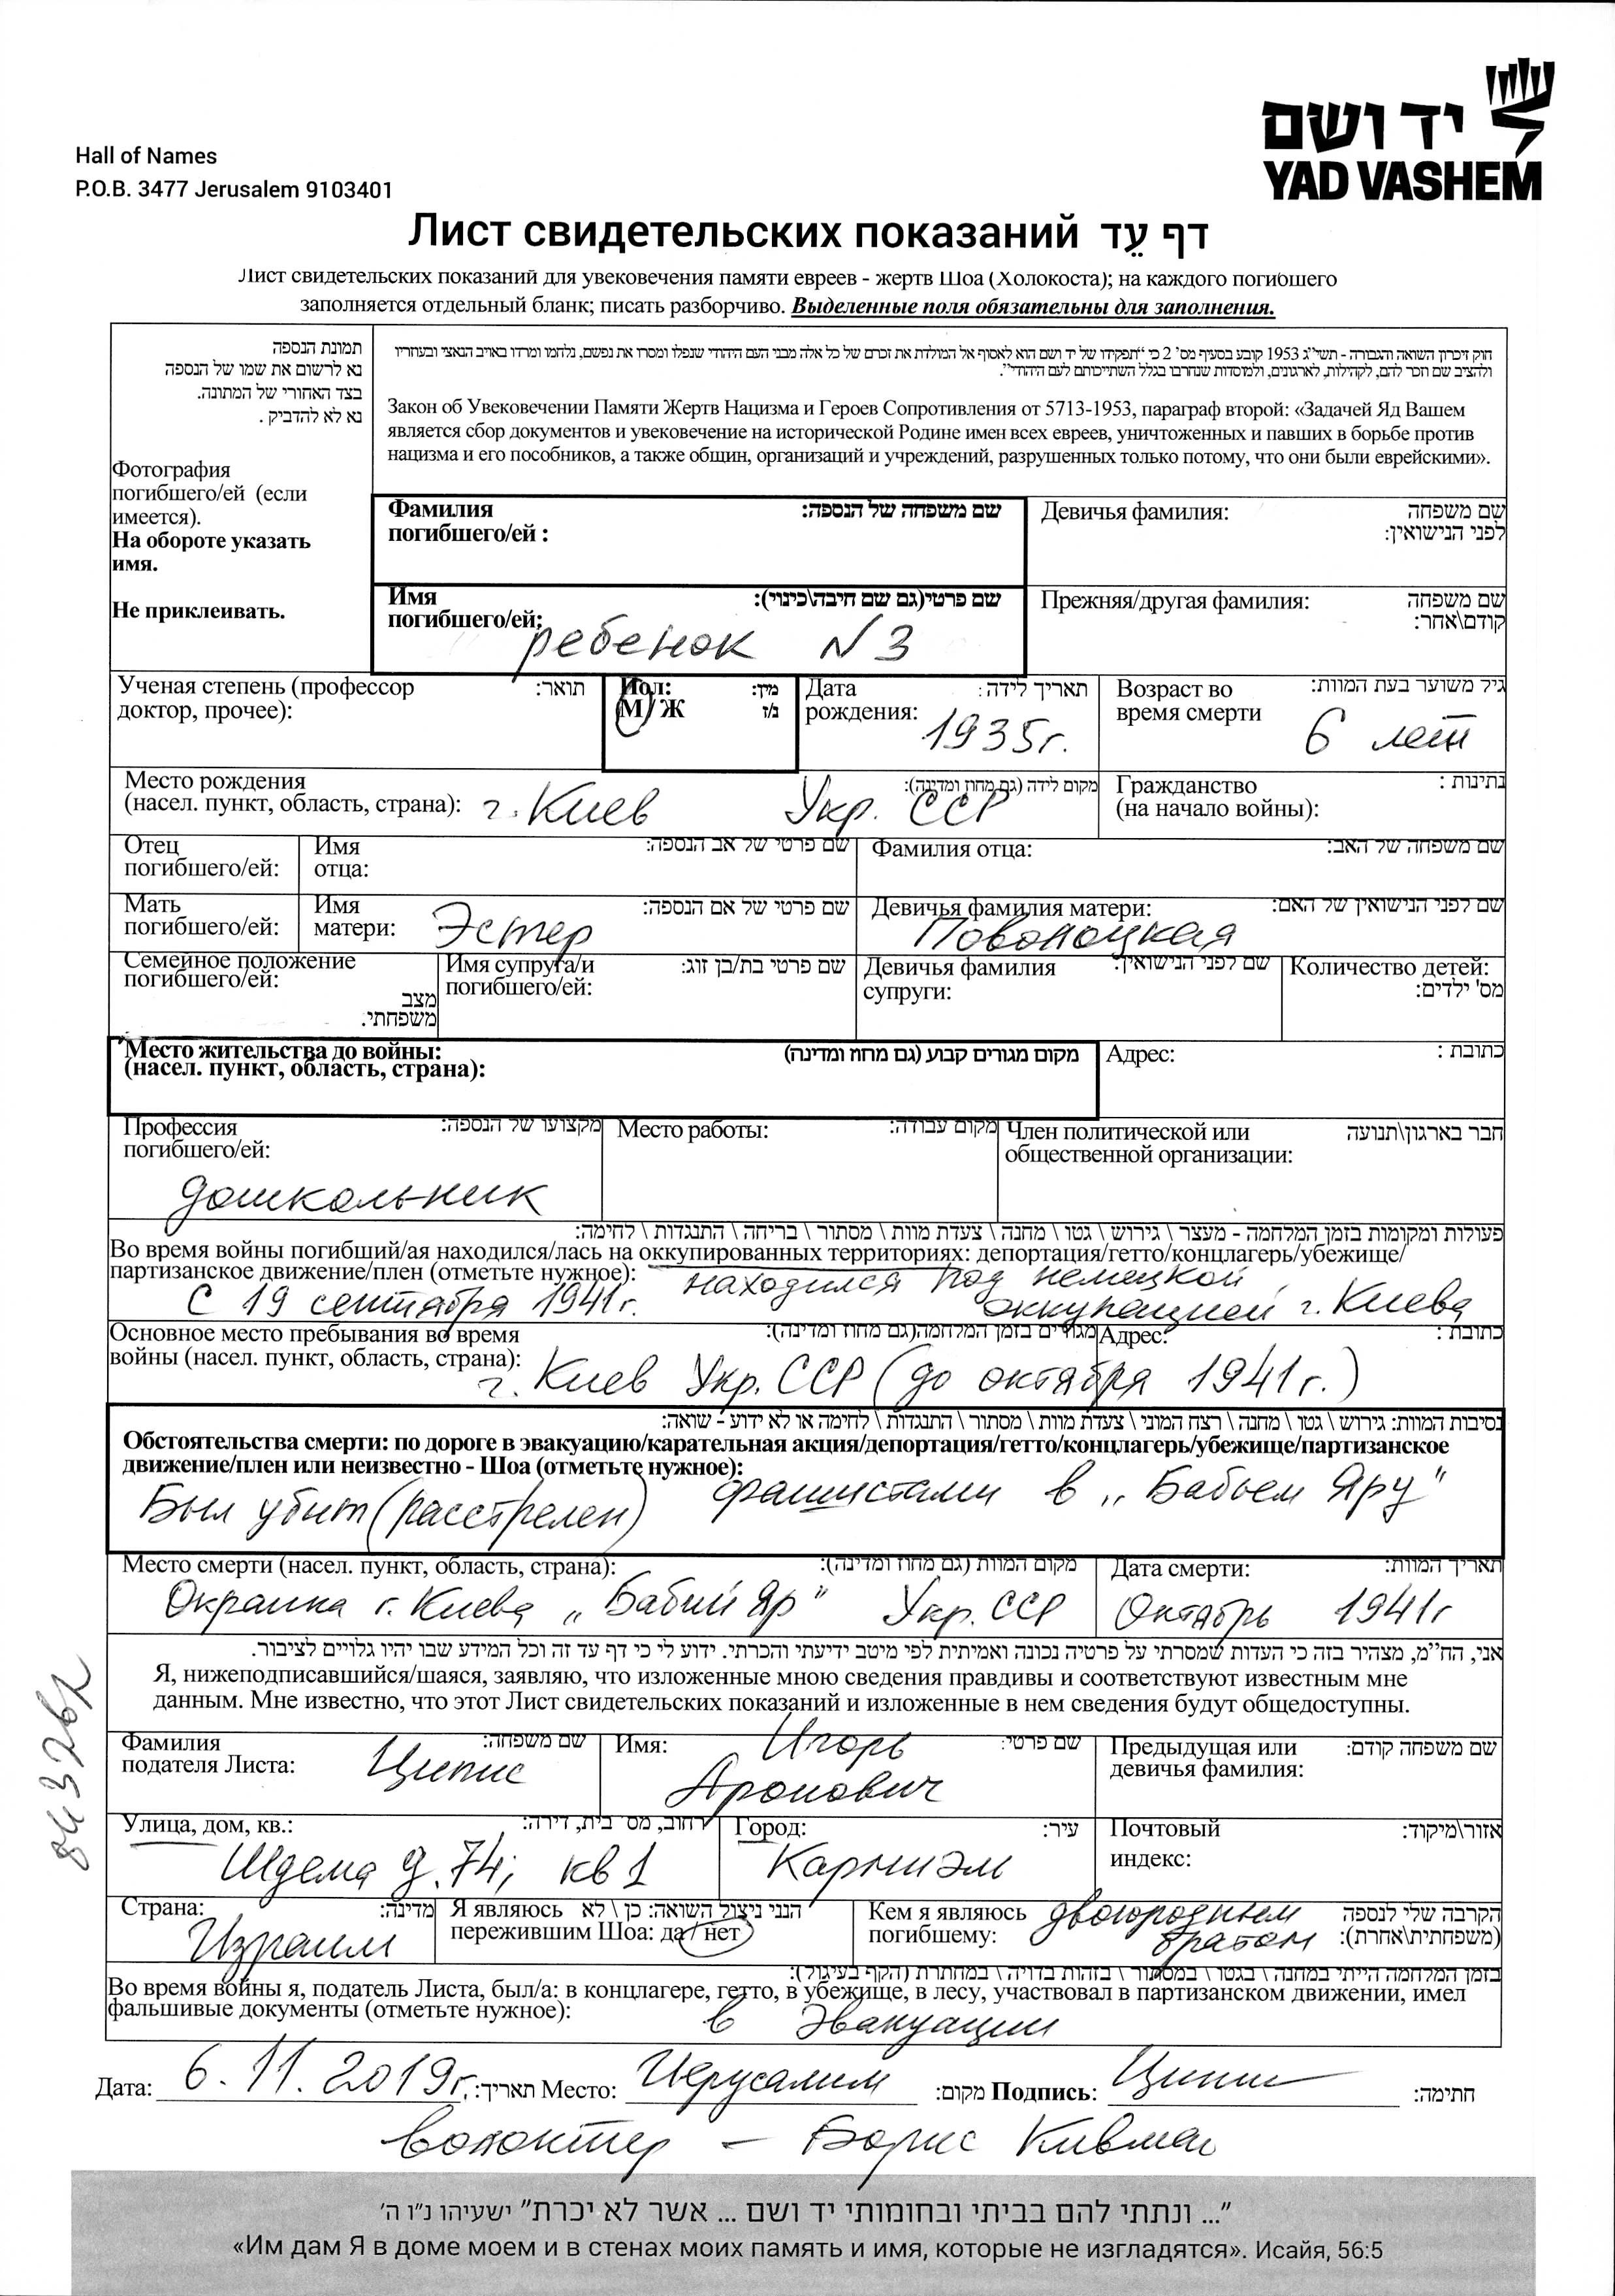 יד ושם
YAD VASHEM
Hall of Names
P.O.B. 3477 Jerusalem 9103401
Лист свидетельских показаний דף עֵד
Лист свидетельских показаний для увековечения памяти евреев - жертв Шоа (Холокоста); на каждого погибшего
заполняется отдельный бланк; писать разборчиво. Выделенные поля обязательны для заполнения.
תמונת הנספה
נא לרשום את שמו של הנספה
בצד האחורי של התמונה.
נא לא להדביק .
Фотография
погибшего/ей (если
имеется).
На обороте указать
имя.
Не приклеивать.
חוק זיכרון השואה והגבורה - תשי״ג 1953 קובע בסעיף מס' 2 כי "תפקידו של יד ושם הוא לאסוף אל המולדת את זכרם של כל אלה מבני העם היהודי שנפלו ומסרו את נפשם, נלחמו ומרדו באויב הנאצי ובעוזריו
ולהציב שם וזכר להם, לקהילות, לארגונים, ולמוסדות שנחרבו בגלל השתייכותם לעם היהודי".
Закон об Увековечении Памяти Жертв Нацизма и Героев Сопротивления от 5713-1953, параграф второй: «Задачей Яд Вашем
является сбор документов и увековечение на исторической Родине имен всех евреев, уничтоженных и павших в борьбе против
нацизма и его пособников, а также общин, организаций и учреждений, разрушенных только потому, что они были еврейскими».
Фамилия שם משפחה של הנספה:
погибшего/ей :
Девичья фамилия: שם משפחה
לפני הנישואין:
Имя שם פרטי(גם שם חיבה\כינוי):
погибшего/ей:
ребенок N 3
Прежняя/другая фамилия: שם משפחה
קודם\אחר:
Ученая степень (профессор תואר:
доктор, прочее):
Пол: מין:
М / Ж ז/נ
Дата תאריך לידה:
рождения: 1935г.
Возраст во גיל משוער בעת המוות:
время смерти 6 лет
Место рождения מקום לידה (גם מחוז ומדינה):
(насел. пункт, область, страна): г. Киев Укр. ССР
Гражданство נתינות :
(на начало войны):
Отец
погибшего/ей:
Имя שם פרטי של אב הנספה:
отца:
Фамилия отца: שם משפחה של האב:
Мать
погибшего/ей:
Имя שם פרטי של אם הנספה:
матери: Эстер
Девичья фамилия матери: שם לפני הנישואין של האם:
Повопоцкая
Семейное положение
погибшего/ей:
מצב
משפחתי.
Имя супруга/и שם פרטי בת/בן זוג:
погибшего/ей:
Девичья фамилия שם לפני הנישואין:
супруги:
Количество детей:
מס' ילדים:
Место жительства до войны: מקום מגורים קבוע (גם מחוז ומדינה)
(насел. пункт, область, страна):
Адрес: כתובת :
Профессия מקצועו של הנספה:
погибшего/ей:
дошкольник
Место работы: מקום עבודה:
Член политической или חבר בארגון\תנועה
общественной организации:
פעולות ומקומות בזמן המלחמה - מעצר \ גירוש \ גטו \ מחנה \ צעדת מוות \ מסתור \ בריחה \ התנגדות \ לחימה:
Во время войны погибший/ая находился/лась на оккупированных территориях: депортация/гетто/концлагерь/убежище/
партизанское движение/плен (отметьте нужное): находился под немецкой
С 19 сентября 1941г. оккупацией г. Киева
Основное место пребывания во время מגורים בזמן המלחמה(גם מחוז ומדינה):
войны (насел. пункт, область, страна):
Адрес: כתובת :
г. Киев Укр. ССР (до октября 1941г.)
נסיבות המוות: גירוש \ גטו \ מחנה \ רצח המוני \ צעדת מוות \ מסתור \ התנגדות \ לחימה או לא ידוע - שואה:
Обстоятельства смерти: по дороге в эвакуацию/карательная акция/депортация/гетто/концлагерь/убежище/партизанское
движение/плен или неизвестно - Шоа (отметьте нужное):
Был убит (расстрелен) фашистами в „Бабьем Яру"
Место смерти (насел. пункт, область, страна): מקום המוות (גם מחוז ומדינה):
Окраина г. Киева „Бабий Яр" Укр. ССР
Дата смерти: תאריך המוות:
Октябрь 1941г
אני, הח״מ, מצהיר בזה כי העדות שמסרתי על פרטיה נכונה ואמיתית לפי מיטב ידיעתי והכרתי. ידוע לי כי דף עד זה וכל המידע שבו יהיו גלויים לציבור.
Я, нижеподписавшийся/шаяся, заявляю, что изложенные мною сведения правдивы и соответствуют известным мне
данным. Мне известно, что этот Лист свидетельских показаний и изложенные в нем сведения будут общедоступны.
Фамилия שם משפחה:
подателя Листа: Ципис
Имя: שם פרטי:
Игорь
Аронович
Предыдущая или שם משפחה קודם:
девичья фамилия:
Улица, дом, кв.: רחוב, מס' בית, דירה:
Шдема д. 74; кв 1
Город: עיר:
Кармиэль
Почтовый אזור\מיקוד:
индекс:
Страна: מדינה:
Израиль
Я являюсь הנני ניצול השואה: כן \ לא
пережившим Шоа: да / нет
Кем я являюсь двоюродным הקרבה שלי לנספה
погибшему: братом (משפחתית\אחרת):
בזמן המלחמה הייתי במחנה \ בגטו \ במסתור \ בזהות בדויה \ במחתרת (הקף בעיגול):
Во время войны я, податель Листа, был/а: в концлагере, гетто, в убежище, в лесу, участвовал в партизанском движении, имел
фальшивые документы (отметьте нужное): в Эвакуации
Дата: 6.11.2019г. תאריך: Место: Иерусалим מקום: Подпись: Ципис חתימה:
волонтер - Борис
"... ונתתי להם בביתי ובחומותי יד ושם ... אשר לא יכרת" ישעיהו נ״ו ה'
«Им дам Я в доме моем и в стенах моих память и имя, которые не изгладятся». Исайя, 56:5